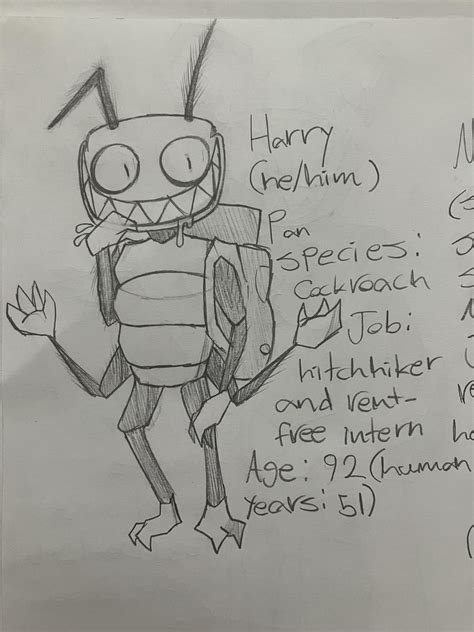 Harry
(he/him)
Pan
species:
Cockroach
Job:
hitchhiker
and rent-
free intern
Age: 92 (human
years: 51)
N
(s